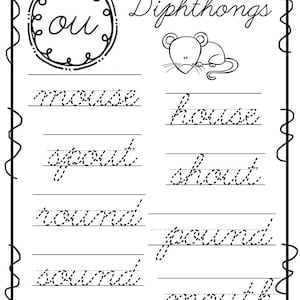 ou
Diphthongs
mouse
house
spout
shout
round
pound
sound
mouth